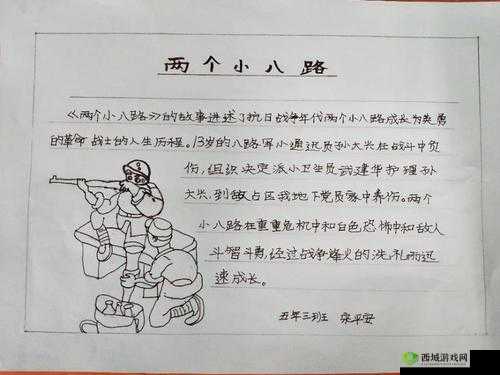 两个小八路
《两个小八路》的故事讲述了抗日战争年代两个小八路成长为英勇
的革命战士的人生历程。13岁的八路军小通讯员孙大兴在战斗中负
伤，组织决定派小卫生员武建华护理孙
大兴，到敌占区我地下党员家中养伤。两个
小八路在重重危机中和白色恐怖中和敌人
斗智斗勇，经过战争烽火的洗礼而迅
速成长。
五年三班 平安
西域游戏网